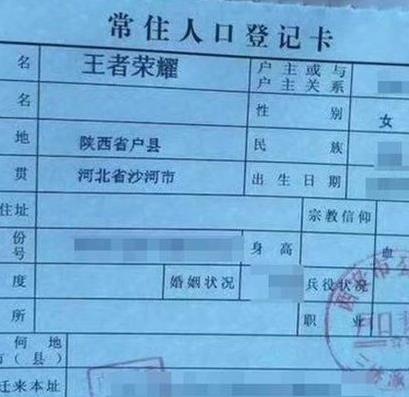 常住人口登记卡
名 王者荣耀 户主或与户主关系
名 性别 女
地 陕西省户县 民族
贯 河北省沙河市 出生日期
住址 宗教信仰
份号 身高 血
度 婚姻状况 兵役状况
所 职业
何地
市(县)
迁来本址